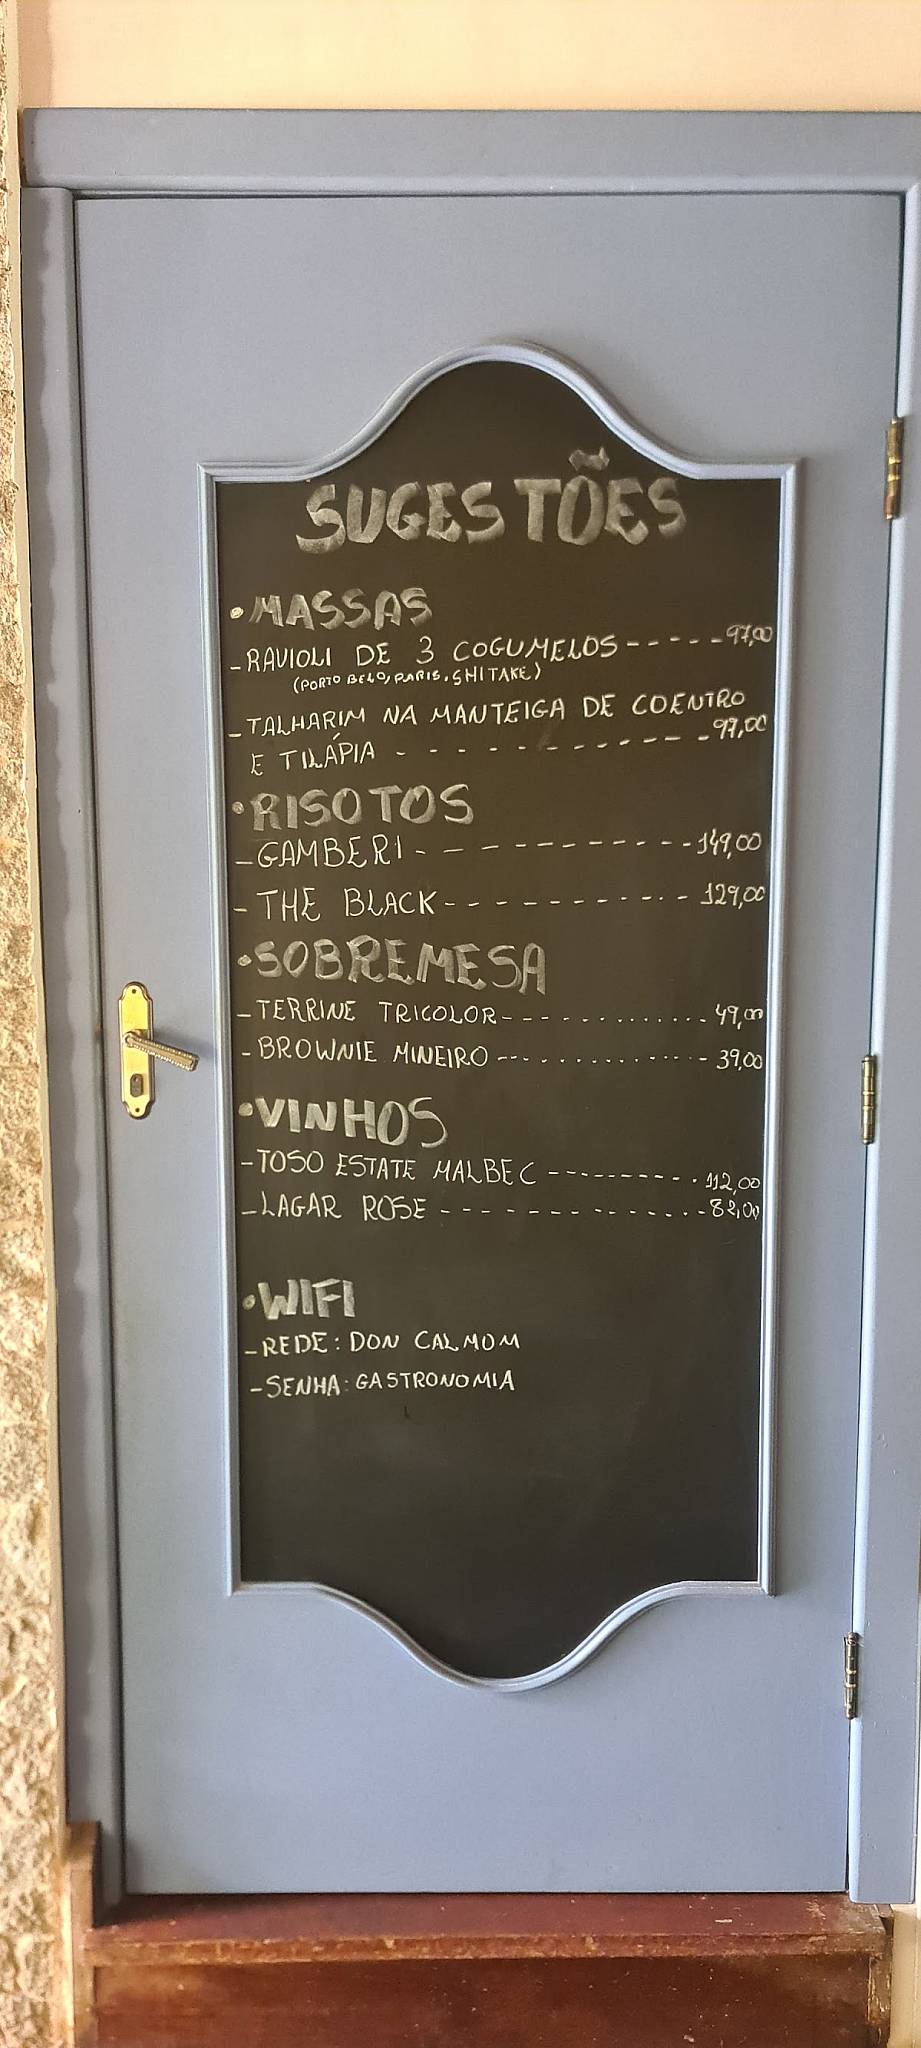 SUGESTÕES
•MASSAS
-RAVIOLI DE 3 COGUMELOS-----97,00
(PORTO BELO, PARIS, SHITAKE)
-TALHARIM NA MANTEIGA DE COENTRO
E TILÁPIA - - - - - - - - - - - - -97,00
•RISOTOS
-GAMBERI- - - - - - - - - - - -149,00
-THE BLACK- - - - - - - - - - -129,00
•SOBREMESA
-TERRINE TRICOLOR-------------49,00
-BROWNIE MINEIRO--------------39,00
•VINHOS
-TOSO ESTATE MALBEC----------112,00
-LAGAR ROSE - - - - - - - - - - - -82,00
•WIFI
-REDE: DON CALMOM
-SENHA: GASTRONOMIA